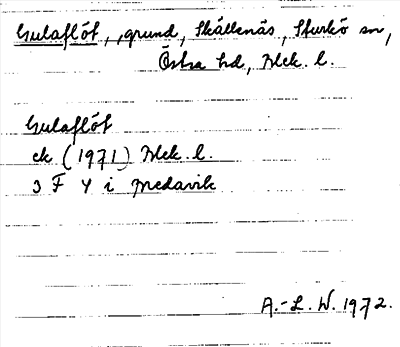 Gulaflöt, grund, Skällenäs, Sturkö sn,
Östra hd, Blek. l.
Gulaflöt
ek (1971) Blek. l.
3 F 4 i Medavik
A.-L. W. 1972.